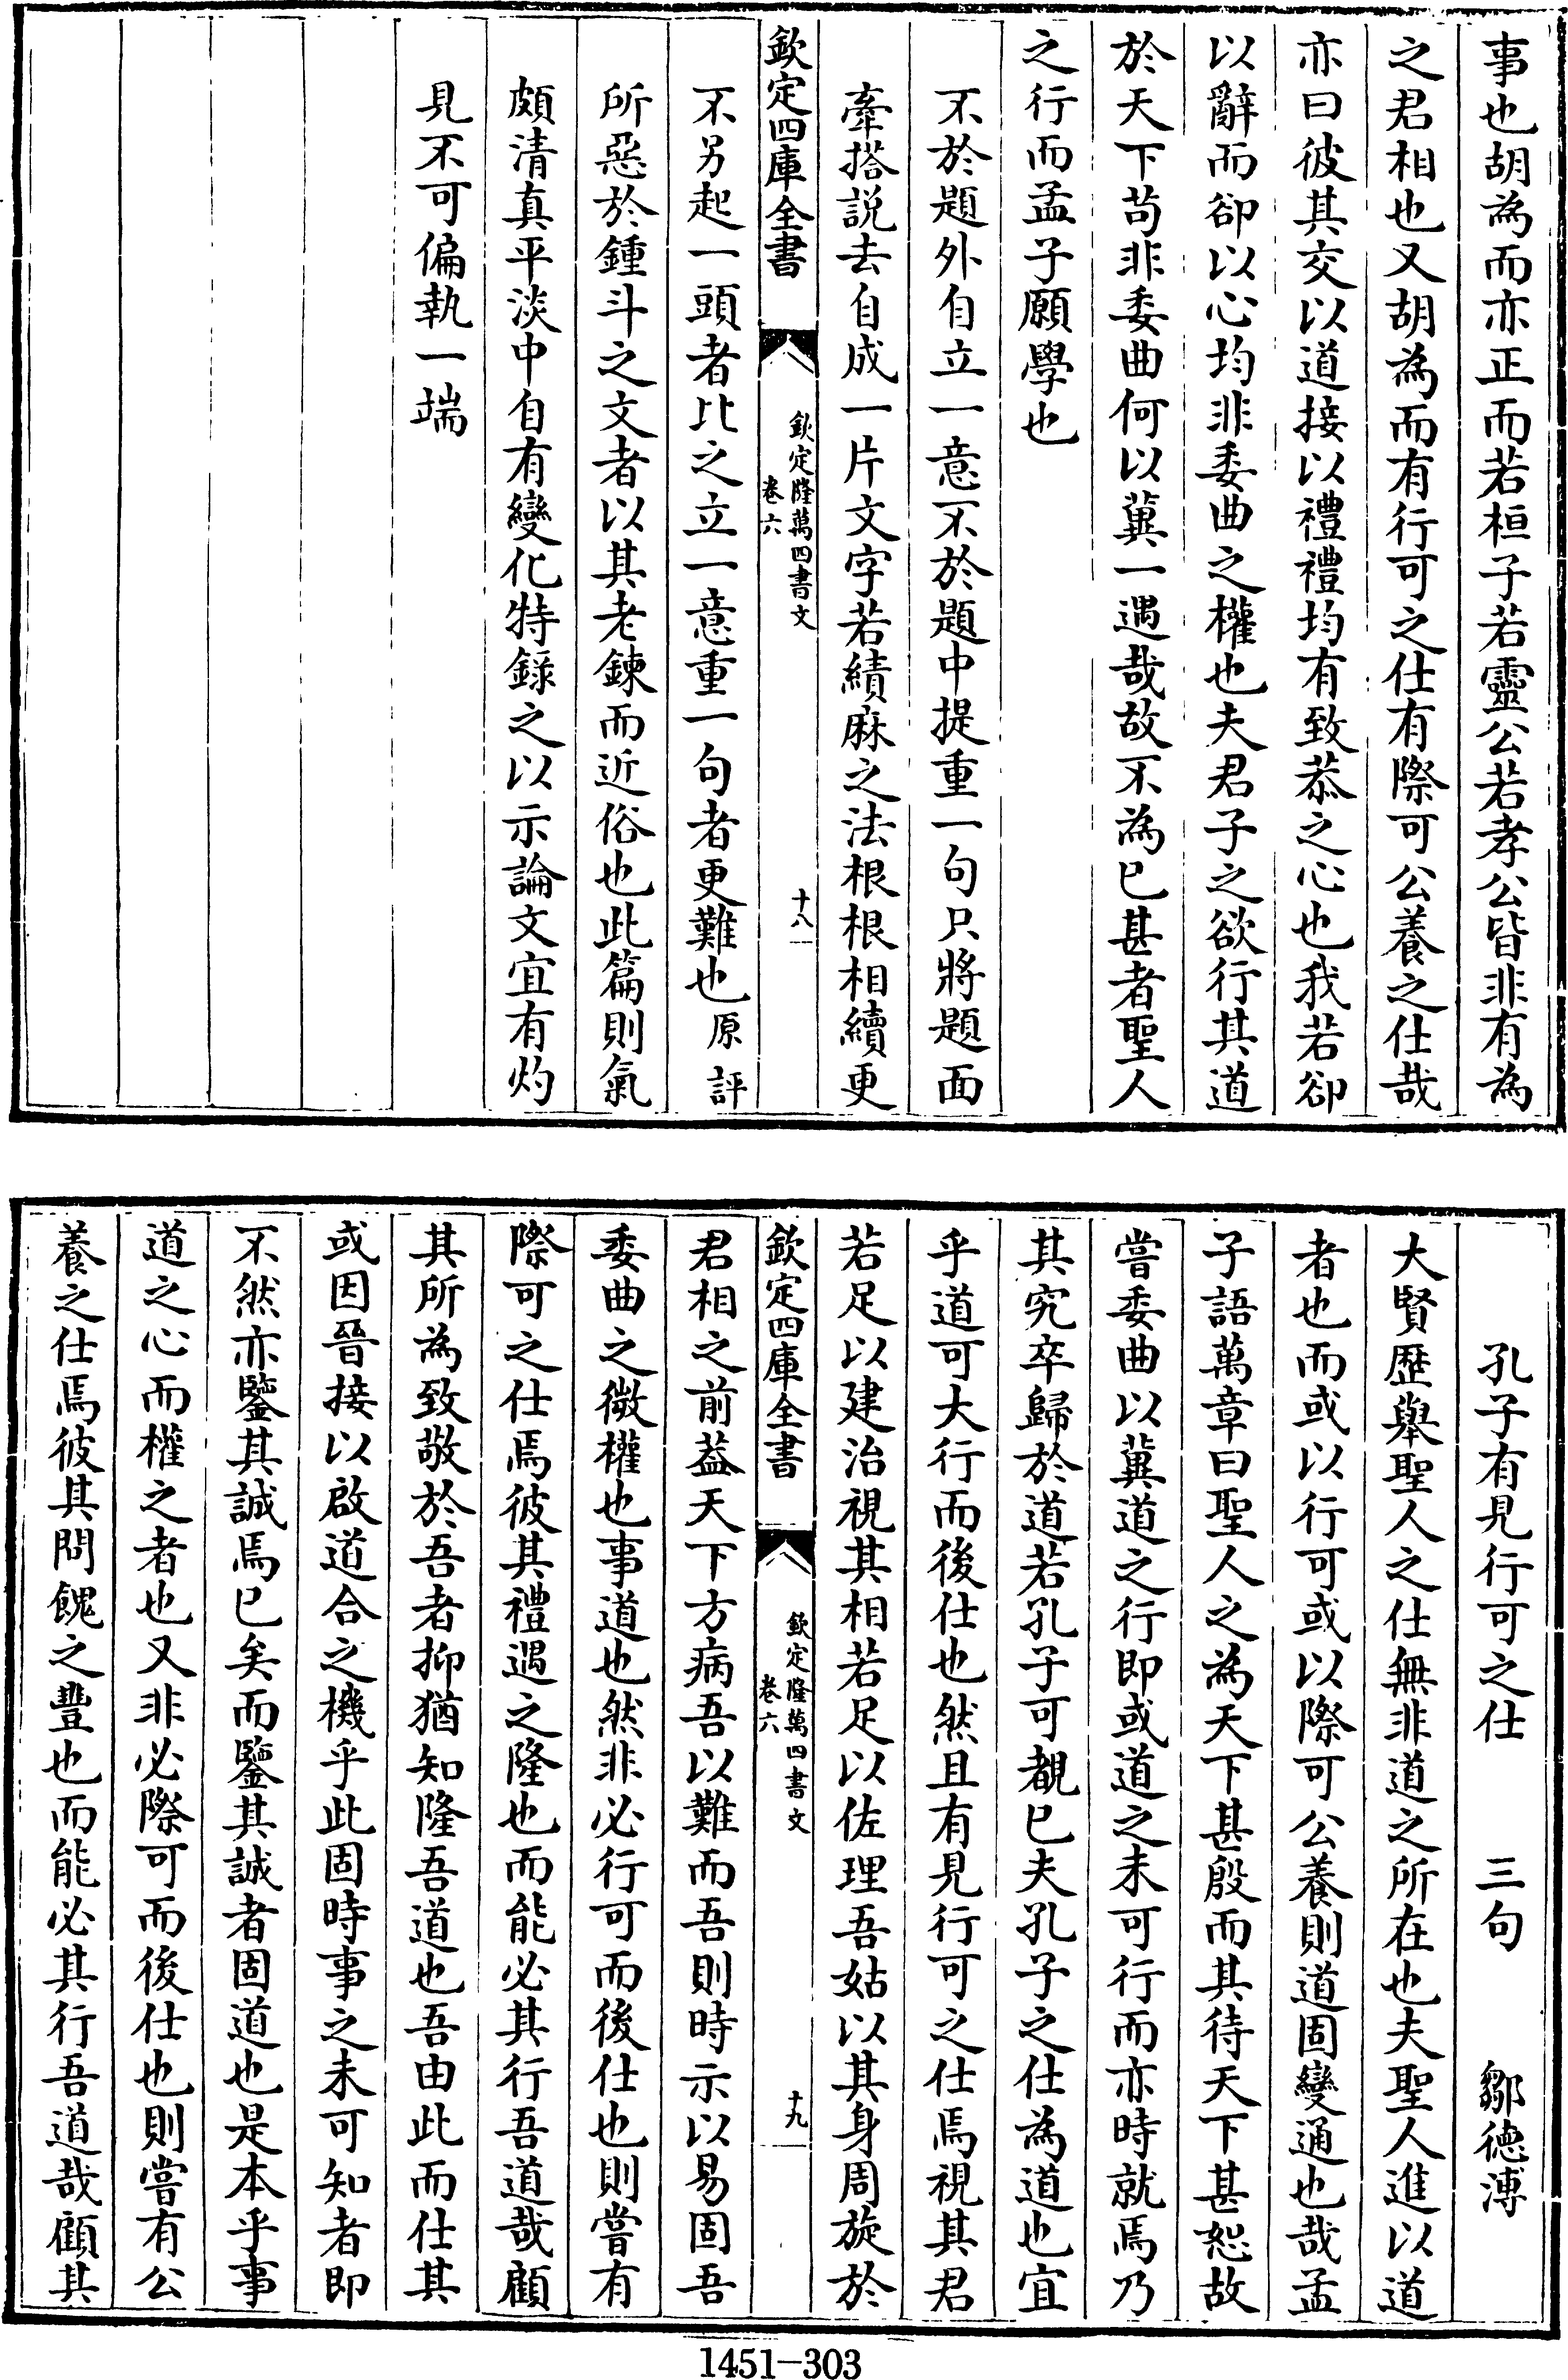 事也胡為而亦正而若桓子若靈公若孝公皆非有為
之君相也又胡為而有行可之仕有際可公養之仕哉
亦曰彼其交以道接以禮禮均有致恭之心也我若卻
以辭而卻以心均非委曲之權也夫君子之欲行其道
於天下苟非委曲何以冀一遇哉故不為已甚者聖人
之行而孟子願學也
不於題外自立一意不於題中提重一句只將題面
牽搭説去自成一片文字若績麻之法根根相續更
欽定四庫全書
欽定隆萬四書文
卷六
十八
不另起一頭者比之立一意重一句者更難也原評
所惡於鍾斗之文者以其老鍊而近俗也此篇則氣
頗清真平淡中自有變化特録之以示論文宜有灼
見不可偏執一端
孔子有見行可之仕 三句 鄒德溥
大賢歴舉聖人之仕無非道之所在也夫聖人進以道
者也而或以行可或以際可公養則道固變通也哉孟
子語萬章曰聖人之為天下甚殷而其待天下甚恕故
嘗委曲以冀道之行即或道之未可行而亦時就焉乃
其究卒歸於道若孔子可覩已夫孔子之仕為道也宜
乎道可大行而後仕也然且有見行可之仕焉視其君
若足以建治視其相若足以佐理吾姑以其身周旋於
欽定四庫全書
欽定隆萬四書文
卷六
十九
君相之前葢天下方病吾以難而吾則時示以易固吾
委曲之微權也事道也然非必行可而後仕也則嘗有
際可之仕焉彼其禮遇之隆也而能必其行吾道哉顧
其所為致敬於吾者抑猶知隆吾道也吾由此而仕其
或因晉接以啟道合之機乎此固時事之未可知者即
不然亦鑒其誠焉已矣而鑒其誠者固道也是本乎事
道之心而權之者也又非必際可而後仕也則嘗有公
養之仕焉彼其問餽之豐也而能必其行吾道哉顧其
1451-303